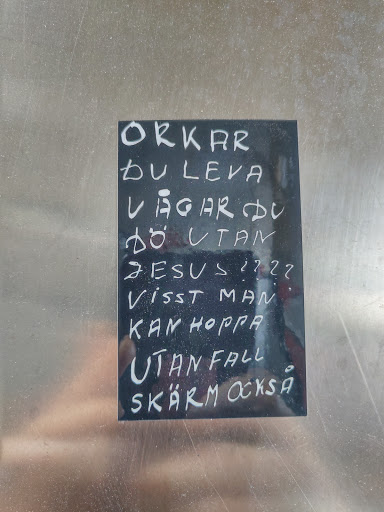 ORKAR
DU LEVA
VÅGAR DU
DÖ UTAN
JESUS????
VISST MAN
KAN HOPPA
UTAN FALL
SKÄRM OCKSÅ